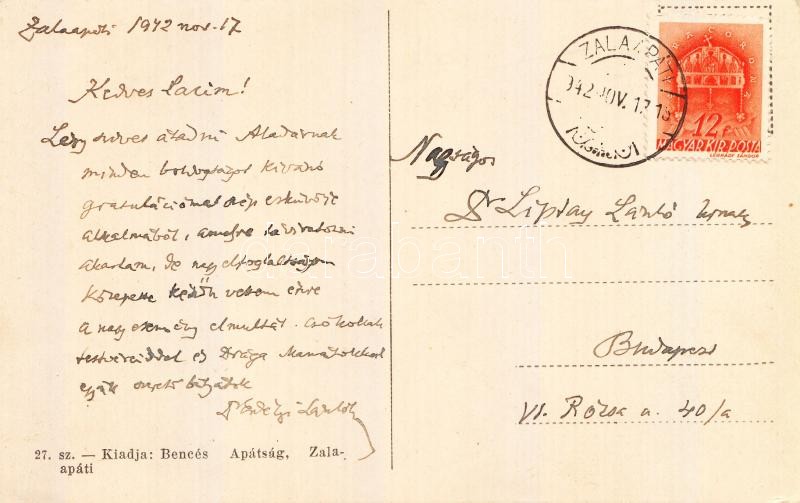 Zalaapáti 1942 nov. 17
Kedves Lacim!
Légy szíves átadni Aladárnak
minden boldogságot kívánó
gratulációmat szép esküvője
alkalmából, amelyre táviratozni
akartam, de nagy elfoglaltságom
közepette későn vettem észre
a nagy esemény elmultát. Csókollak
testvéreiddel és Drága Mamátokkal
együtt szerető bátyátok
Dr Erdélyi László
27. sz. — Kiadja: Bencés Apátság, Zala-
apáti
ZALAAPÁTI
942 NOV. 17. 18
KORONA
12 f
MAGYAR KIR. POSTA
LÉGRÁDY SÁNDOR
Nagyságos
Dr Liptay László úrnak
Budapest
VI. Rózsa u. 40/a